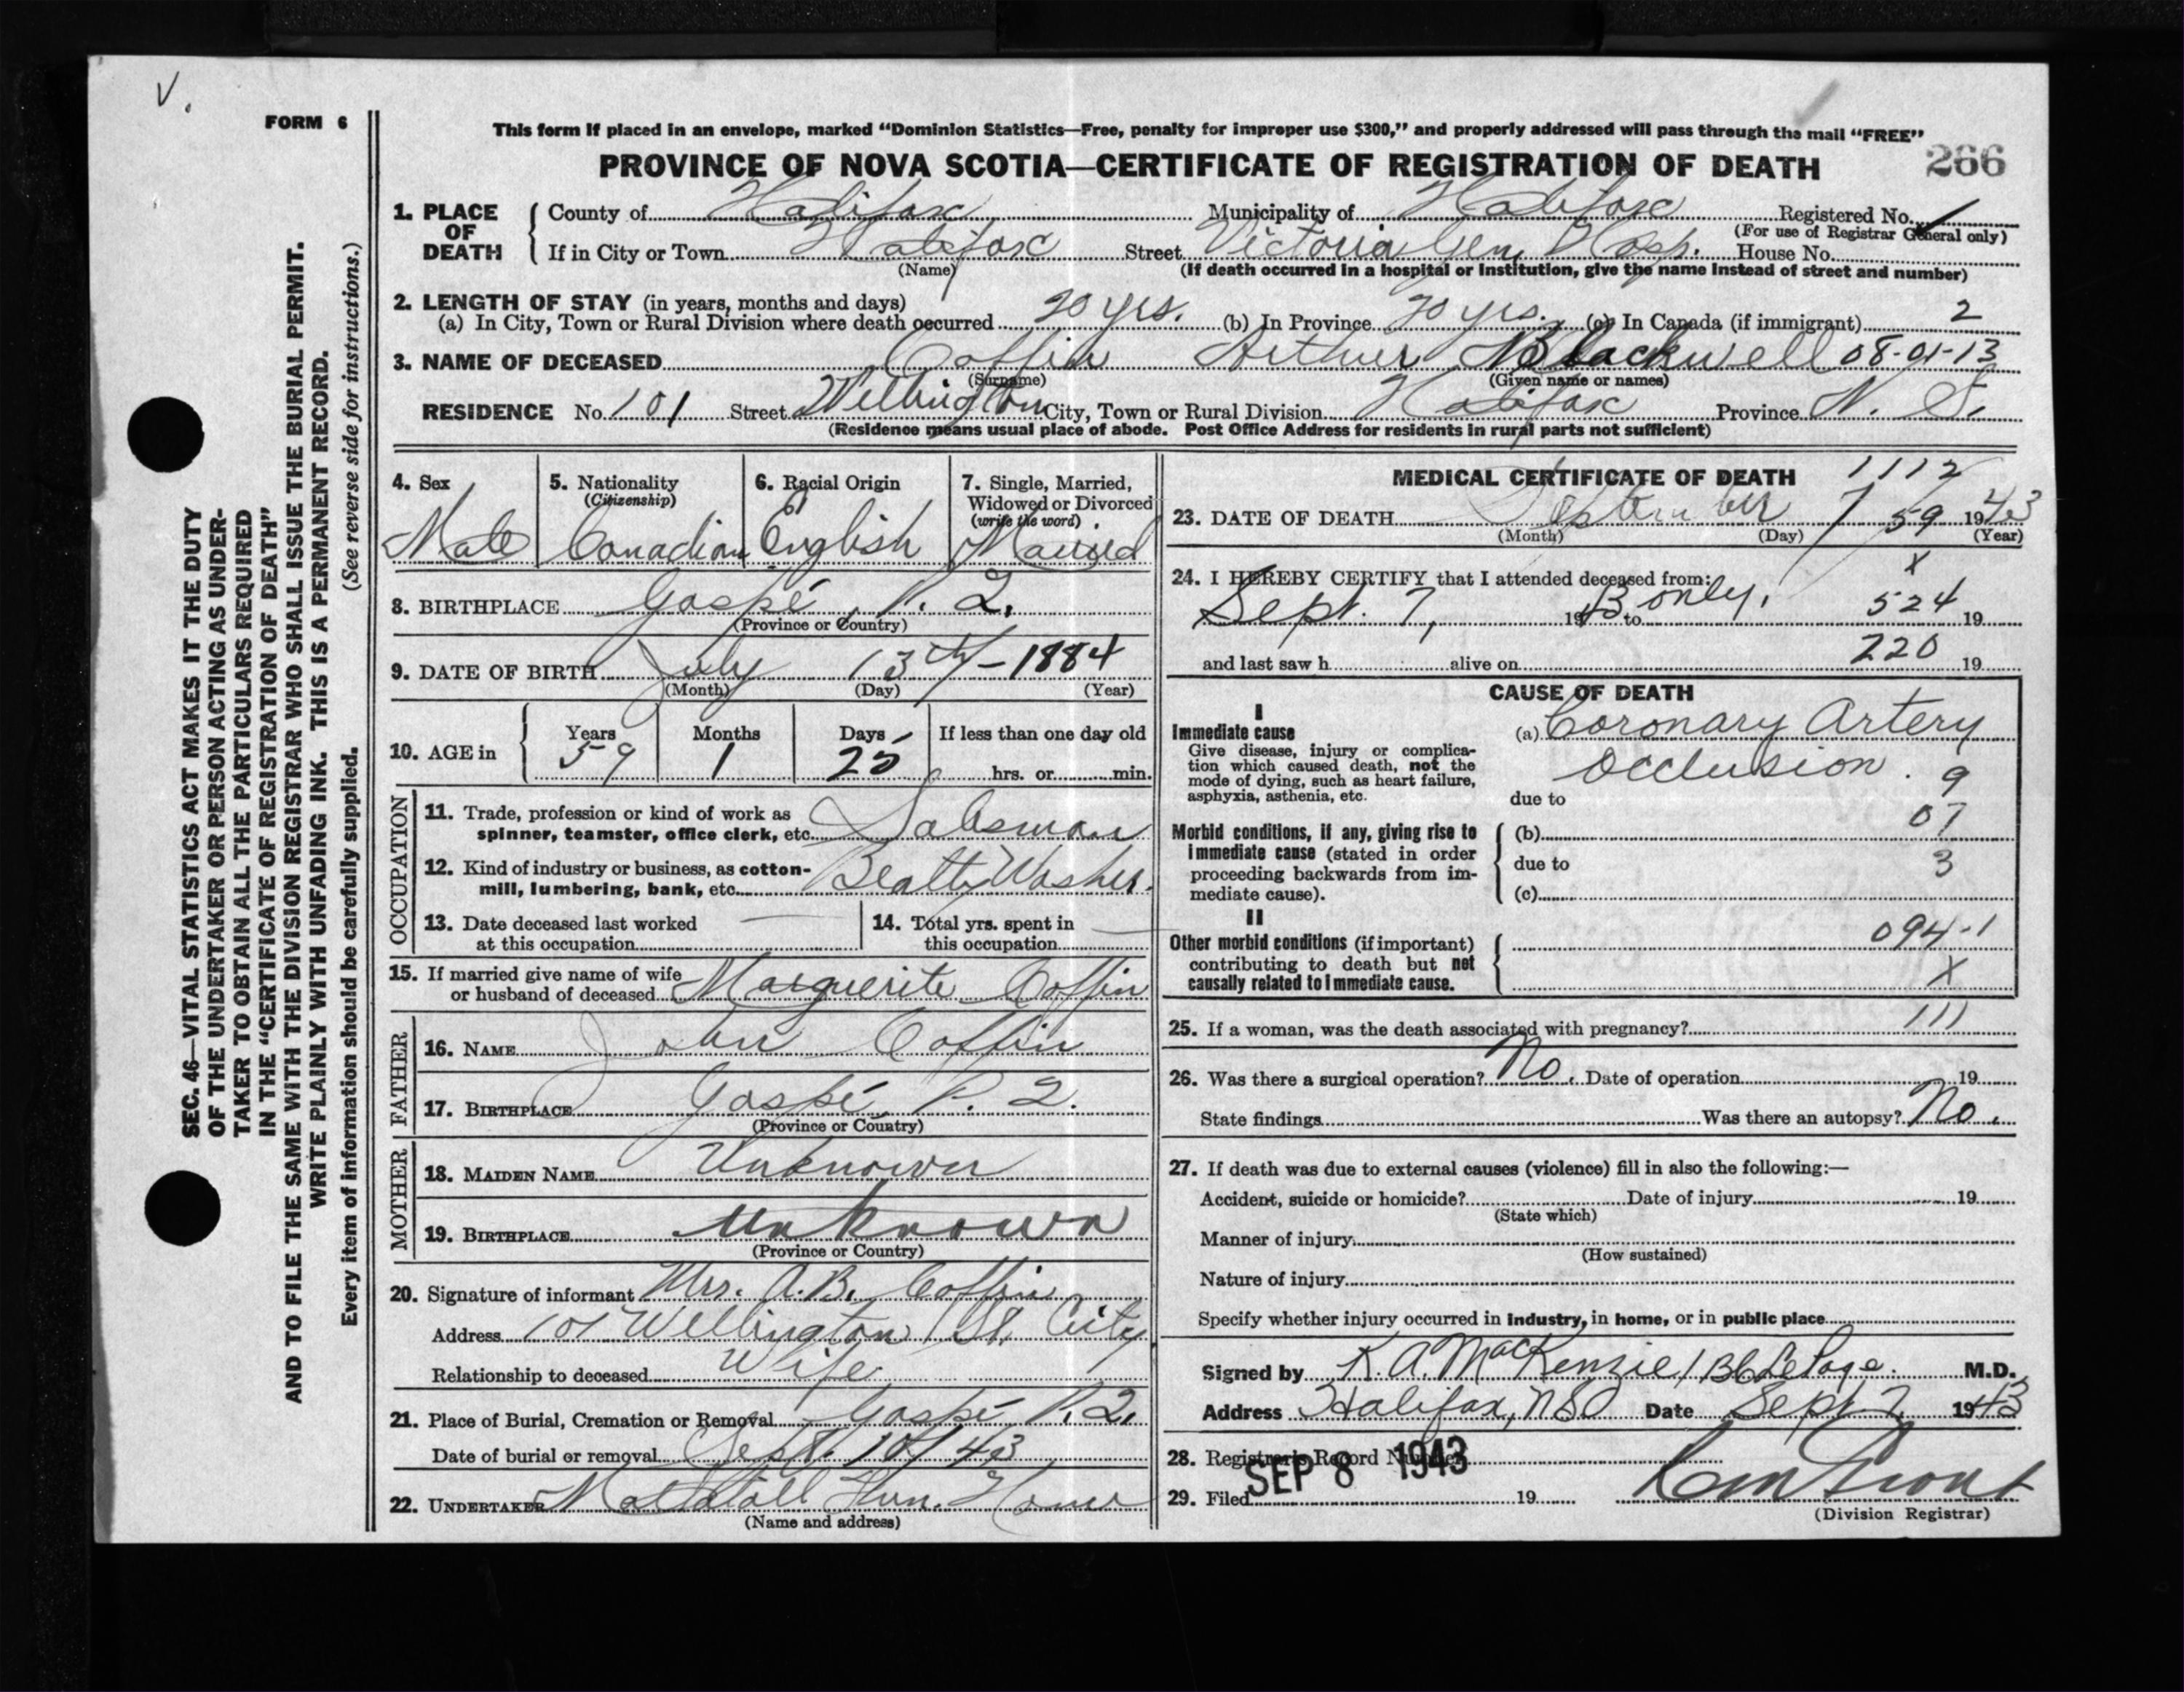 V.
FORM 6
SEC. 46—VITAL STATISTICS ACT MAKES IT THE DUTY
OF THE UNDERTAKER OR PERSON ACTING AS UNDER-
TAKER TO OBTAIN ALL THE PARTICULARS REQUIRED
IN THE "CERTIFICATE OF REGISTRATION OF DEATH"
AND TO FILE THE SAME WITH THE DIVISION REGISTRAR WHO SHALL ISSUE THE BURIAL PERMIT.
WRITE PLAINLY WITH UNFADING INK. THIS IS A PERMANENT RECORD.
Every item of information should be carefully supplied. (See reverse side for instructions.)
This form if placed in an envelope, marked "Dominion Statistics—Free, penalty for improper use $300," and properly addressed will pass through the mail "FREE"
PROVINCE OF NOVA SCOTIA—CERTIFICATE OF REGISTRATION OF DEATH 266
1. PLACE OF DEATH
County of Halifax Municipality of Halifax Registered No.
(For use of Registrar General only)
If in City or Town Halifax Street Victoria Gen. Hosp. House No.
(Name) (If death occurred in a hospital or institution, give the name instead of street and number)
2. LENGTH OF STAY (in years, months and days)
(a) In City, Town or Rural Division where death occurred 20 yrs. (b) In Province 20 yrs. (c) In Canada (if immigrant) 2
3. NAME OF DECEASED Coffin Arthur Blackwell 08-01-13
(Surname) (Given name or names)
RESIDENCE No. 101 Street Wellington City, Town or Rural Division Halifax Province N. S.
(Residence means usual place of abode. Post Office Address for residents in rural parts not sufficient)
4. Sex Male
5. Nationality (Citizenship) Canadian
6. Racial Origin English
7. Single, Married, Widowed or Divorced (write the word) Married
8. BIRTHPLACE Gaspé, P. Q.
(Province or Country)
9. DATE OF BIRTH July 13th - 1884
(Month) (Day) (Year)
10. AGE in Years 59 Months 1 Days 25 If less than one day old
hrs. or min.
OCCUPATION
11. Trade, profession or kind of work as
spinner, teamster, office clerk, etc. Salesman
12. Kind of industry or business, as cotton-
mill, lumbering, bank, etc. Beatty Washer.
13. Date deceased last worked
at this occupation
14. Total yrs. spent in
this occupation
15. If married give name of wife
or husband of deceased Marguerite Coffin
FATHER
16. NAME John Coffin
17. BIRTHPLACE Gaspé, P. Q.
(Province or Country)
MOTHER
18. MAIDEN NAME Unknown
19. BIRTHPLACE Unknown
(Province or Country)
20. Signature of informant Mrs. A. B. Coffin
Address 101 Wellington St. City
Relationship to deceased Wife
21. Place of Burial, Cremation or Removal Gaspé P. Q.
Date of burial or removal Sept. 10/43
22. UNDERTAKER Mattatall Fun. Home
(Name and address)
MEDICAL CERTIFICATE OF DEATH 1112
23. DATE OF DEATH September 7 59 1943
(Month) (Day) (Year)
X
24. I HEREBY CERTIFY that I attended deceased from:
Sept. 7, 1943 to only. 524 19
and last saw h alive on 220 19
CAUSE OF DEATH
I
Immediate cause
Give disease, injury or complica-
tion which caused death, not the
mode of dying, such as heart failure,
asphyxia, asthenia, etc.
(a) Coronary Artery
Occlusion. 9
due to
07
Morbid conditions, if any, giving rise to
immediate cause (stated in order
proceeding backwards from im-
mediate cause).
(b)
due to 3
(c)
II
Other morbid conditions (if important)
contributing to death but not
causally related to immediate cause.
094-1
X
25. If a woman, was the death associated with pregnancy? 111
26. Was there a surgical operation? No. Date of operation 19
State findings Was there an autopsy? No.
27. If death was due to external causes (violence) fill in also the following:—
Accident, suicide or homicide? Date of injury 19
(State which)
Manner of injury
(How sustained)
Nature of injury
Specify whether injury occurred in industry, in home, or in public place
Signed by K. A. MacKenzie / LePage. M.D.
Address Halifax, NS Date Sept 7 1943
28. Registrar's Record Number
29. Filed SEP 8 1943 19
(Division Registrar)